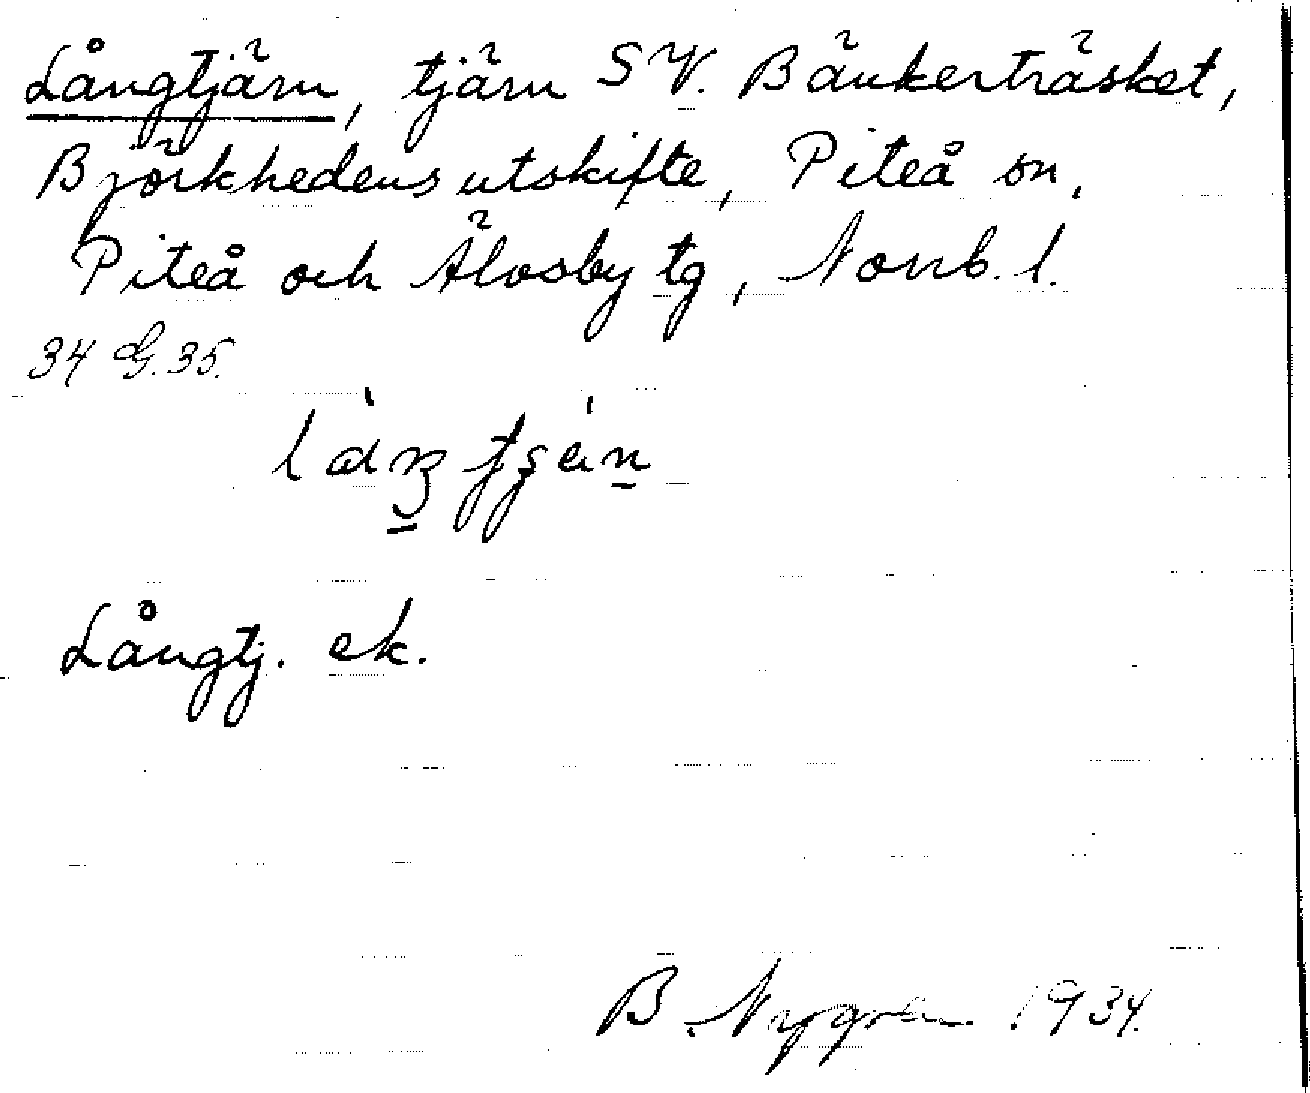 Långtjärn, tjärn SV. Bänkerträsket,
Björkhedens utskifte, Piteå sn,
Piteå och Älvsby tg, Norrb. l.
34 G. 35.
Långtj. ek.
B. Nygren 1934.